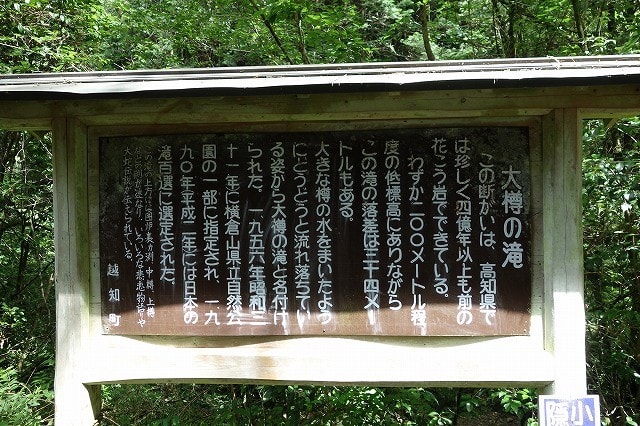 大樽の滝
この断がいは、高知県で
は珍しく四億年以上も前の
花こう岩でできている。
わずか二〇〇メートル程
度の低標高にありながら
この滝の落差は三十四メー
トルもある。
大きな樽の水をまいたよう
にどうどうと流れ落ちてい
る姿から大樽の滝と名付け
られた。一九五六年昭和三
十一年に横倉山県立自然公
園の一部に指定され、一九
九〇年平成二年には日本の
滝百選に選定された。
越知町
小
隠